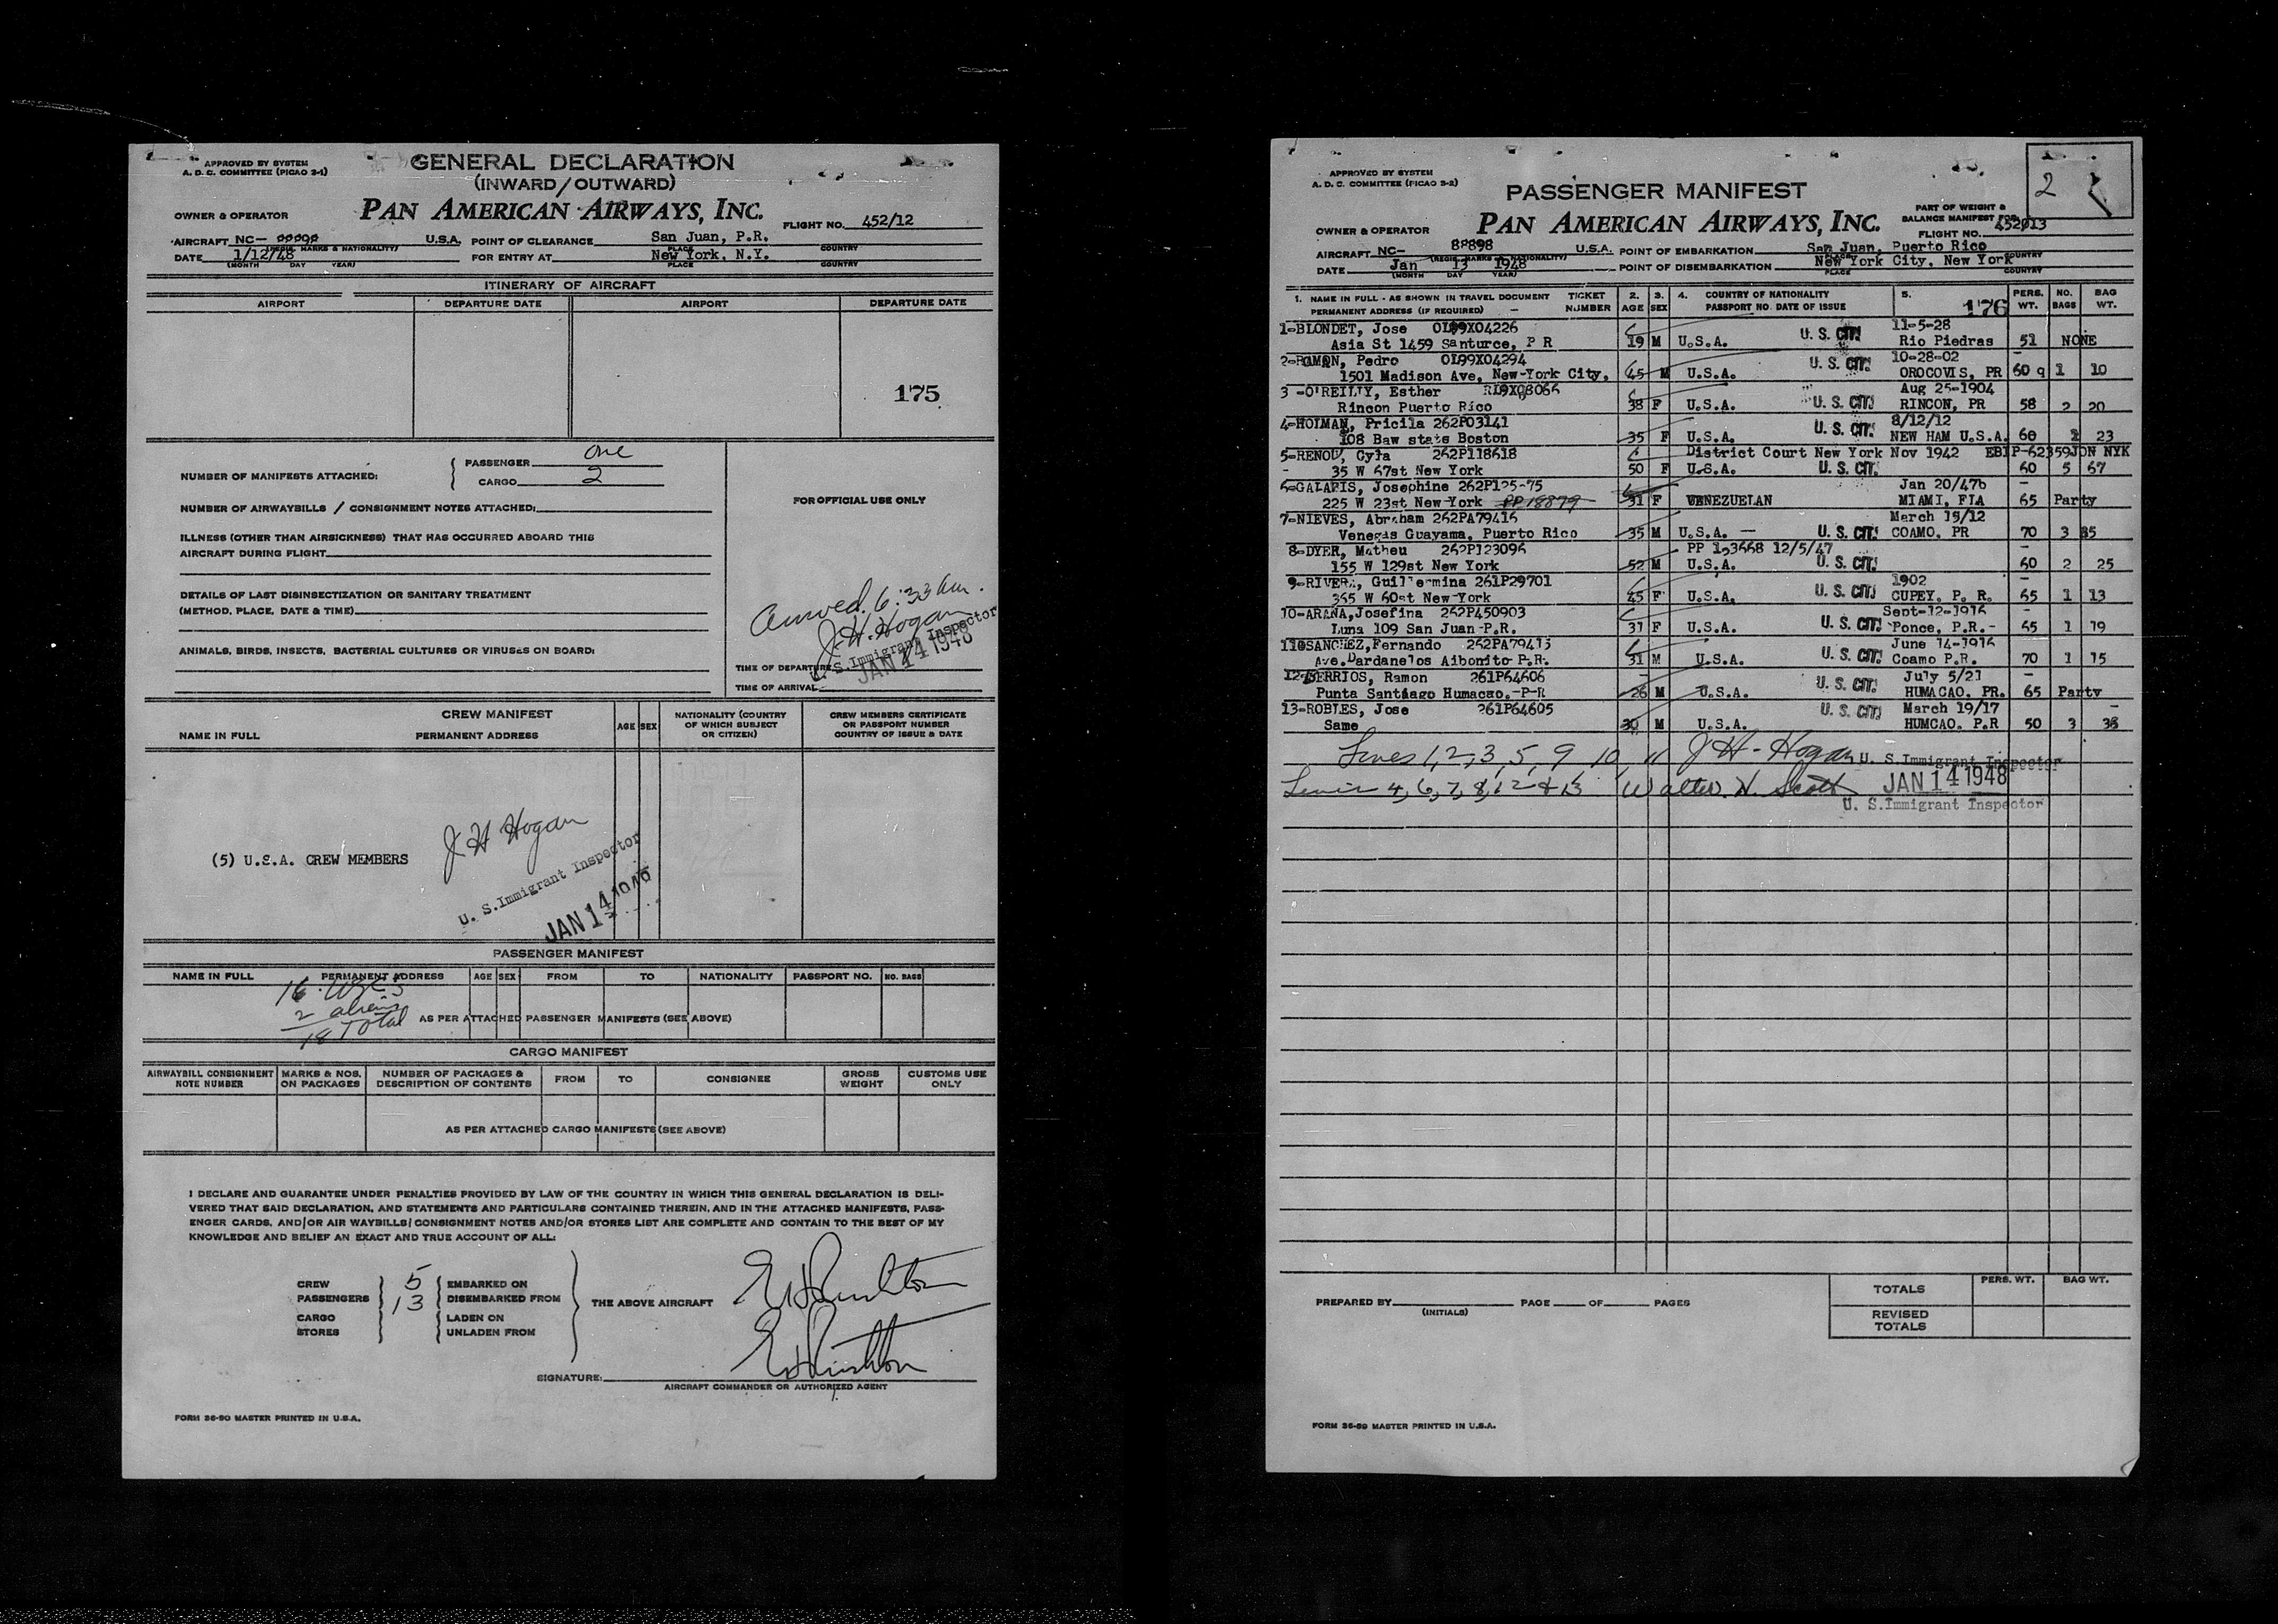 APPROVED BY SYSTEM
A. D. C. COMMITTEE (PICAO 3-1)
GENERAL DECLARATION
(INWARD/OUTWARD)
OWNER & OPERATOR
PAN AMERICAN AIRWAYS, INC.
FLIGHT NO. 452/12
AIRCRAFT NC- U.S.A. POINT OF CLEARANCE San Juan, P.R.
(REGIS. MARKS & NATIONALITY) PLACE COUNTRY
DATE 1/12/48 FOR ENTRY AT New York, N.Y.
(MONTH DAY YEAR) PLACE COUNTRY
ITINERARY OF AIRCRAFT
AIRPORT DEPARTURE DATE AIRPORT DEPARTURE DATE
175
NUMBER OF MANIFESTS ATTACHED: PASSENGER one
CARGO 2
FOR OFFICIAL USE ONLY
NUMBER OF AIRWAYBILLS / CONSIGNMENT NOTES ATTACHED:
ILLNESS (OTHER THAN AIRSICKNESS) THAT HAS OCCURRED ABOARD THIS
AIRCRAFT DURING FLIGHT
DETAILS OF LAST DISINSECTIZATION OR SANITARY TREATMENT
(METHOD, PLACE, DATE & TIME)
ANIMALS, BIRDS, INSECTS, BACTERIAL CULTURES OR VIRUSES ON BOARD:
Arrived 6:33 am.
J.H. Hogan
U. S. Immigrant Inspector
JAN 14 1948
TIME OF DEPARTURE
TIME OF ARRIVAL
CREW MANIFEST
NAME IN FULL PERMANENT ADDRESS
AGE SEX
NATIONALITY (COUNTRY OF WHICH SUBJECT OR CITIZEN)
CREW MEMBERS CERTIFICATE OR PASSPORT NUMBER COUNTRY OF ISSUE & DATE
(5) U.S.A. CREW MEMBERS
J H Hogan
U. S. Immigrant Inspector
JAN 14
PASSENGER MANIFEST
NAME IN FULL PERMANENT ADDRESS AGE SEX FROM TO NATIONALITY PASSPORT NO. NO. BAGS
16 USC's
2 aliens
18 Total
AS PER ATTACHED PASSENGER MANIFESTS (SEE ABOVE)
CARGO MANIFEST
AIRWAYBILL CONSIGNMENT NOTE NUMBER
MARKS & NOS. ON PACKAGES
NUMBER OF PACKAGES & DESCRIPTION OF CONTENTS
FROM TO CONSIGNEE
GROSS WEIGHT
CUSTOMS USE ONLY
AS PER ATTACHED CARGO MANIFESTS (SEE ABOVE)
I DECLARE AND GUARANTEE UNDER PENALTIES PROVIDED BY LAW OF THE COUNTRY IN WHICH THIS GENERAL DECLARATION IS DELI-
VERED THAT SAID DECLARATION, AND STATEMENTS AND PARTICULARS CONTAINED THEREIN, AND IN THE ATTACHED MANIFESTS, PASS-
ENGER CARDS, AND/OR AIR WAYBILLS/CONSIGNMENT NOTES AND/OR STORES LIST ARE COMPLETE AND CONTAIN TO THE BEST OF MY
KNOWLEDGE AND BELIEF AN EXACT AND TRUE ACCOUNT OF ALL:
CREW 5 EMBARKED ON
PASSENGERS 13 DISEMBARKED FROM
THE ABOVE AIRCRAFT
CARGO LADEN ON
STORES UNLADEN FROM
SIGNATURE:
AIRCRAFT COMMANDER OR AUTHORIZED AGENT
FORM 36-90 MASTER PRINTED IN U.S.A.
APPROVED BY SYSTEM
A. D. C. COMMITTEE (PICAO 3-2)
PASSENGER MANIFEST
2
OWNER & OPERATOR
PAN AMERICAN AIRWAYS, INC.
PART OF WEIGHT &
BALANCE MANIFEST FOR
FLIGHT NO.
AIRCRAFT NC- 88898 U.S.A. POINT OF EMBARKATION San Juan, Puerto Rico
(REGIS. MARKS & NATIONALITY) PLACE COUNTRY
DATE Jan 13 1948 POINT OF DISEMBARKATION New York City, New York
(MONTH DAY YEAR) PLACE COUNTRY
1. NAME IN FULL - AS SHOWN IN TRAVEL DOCUMENT TICKET NUMBER
PERMANENT ADDRESS (IF REQUIRED)
2. AGE 3. SEX 4. COUNTRY OF NATIONALITY PASSPORT NO. DATE OF ISSUE 5. 176 PERS. WT. NO. BAGS BAG WT.
1-BLONDET, Jose 0199X04226 11-5-28
Asia St 1459 Santurce, P R 19 M U.S.A. U. S. CIT. Rio Piedras 51 NONE
2-RAMON, Pedro 0199X04294 U. S. CIT. 10-28-02
1501 Madison Ave, New-York City, 45 M U.S.A. OROCOVIS, PR 60 9 1 10
3 -O'REILLY, Esther Aug 25-1904
Rincon Puerto Rico 38 F U.S.A. U. S. CIT. RINCON, PR 58 2 20
4-HOLMAN, Pricila 262P03141 8/12/12
108 Baw state Boston 35 F U.S.A. U. S. CIT. NEW HAM U.S.A. 60 23
5-RENOU, Cyla 262P118618 District Court New York Nov 1942
35 W 67st New York 50 F U.S.A. U. S. CIT. 60 5 67
6-GALARIS, Josephine 262P125-75 Jan 20/47
225 W 23st New-York PP 18879 31 F VENEZUELAN MIAMI, FLA 65 Party
7-NIEVES, Abraham 262PA79416 March 15/12
Venegas Guayama, Puerto Rico 35 M U.S.A. U. S. CIT. COAMO, PR 70 3
8-DYER, Matheu 262P123096 12/5/47
155 W 129st New York 52 M U.S.A. U. S. CIT. 60 2 25
9-RIVERA, Guillermina 261P29701 1902
365 W 60st New-York 45 F U.S.A. U. S. CIT. CUPEY, P. R. 65 1 13
10-ARANA, Josefina 262P450903 Sept-12-1916
Luna 109 San Juan-P.R. 31 F U.S.A. U. S. CIT. Ponce, P.R.- 65 1 19
110SANCHEZ, Fernando 262PA79415 June 14-1916
Ave. Dardanelos Aibonito P.R. 31 M U.S.A. U. S. CIT. Coamo P.R. 70 1 15
12-BERRIOS, Ramon 261P64606 July 5/21
Punta Santiago Humacao.-P-R 26 M U.S.A. U. S. CIT. HUMACAO, PR. 65 Party
13-ROBLES, Jose 261P64605 March 19/17
Same 30 M U.S.A. U. S. CIT. HUMCAO, P.R 50 3 38
Lines 1, 2, 3, 5, 9 10, 11 J H- Hogan U. S. Immigrant Inspector
Lines 4, 6, 7, 8, 12 & 13 Walter H. Scott JAN 14 1948
U. S. Immigrant Inspector
PREPARED BY (INITIALS) PAGE OF PAGES
TOTALS PERS. WT. BAG WT.
REVISED TOTALS
FORM 36-89 MASTER PRINTED IN U.S.A.